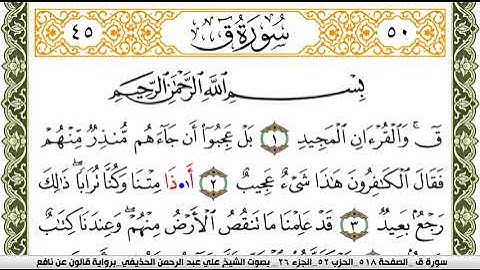 ٥٠ سُورَةُ قٓ ٤٥
بِسْمِ اللَّهِ الرَّحْمَٰنِ الرَّحِيمِ
قٓ ۚ وَالْقُرْءَانِ الْمَجِيدِ ١ بَلْ عَجِبُوٓا أَن جَآءَهُم مُّنذِرٌ مِّنْهُمْ
فَقَالَ الْكَٰفِرُونَ هَٰذَا شَىْءٌ عَجِيبٌ ٢ أَ.ذَا مِتْنَا وَكُنَّا تُرَابًا ۖ ذَٰلِكَ
رَجْعٌۢ بَعِيدٌ ٣ قَدْ عَلِمْنَا مَا تَنقُصُ الْأَرْضُ مِنْهُمْ ۖ وَعِندَنَا كِتَٰبٌ
سورة ق_ الصفحة ٥١٨_الحزب ٥٢_الجزء ٢٦_ بصوت الشيخ علي عبد الرحمن الحذيفي_برواية قالون عن نافع